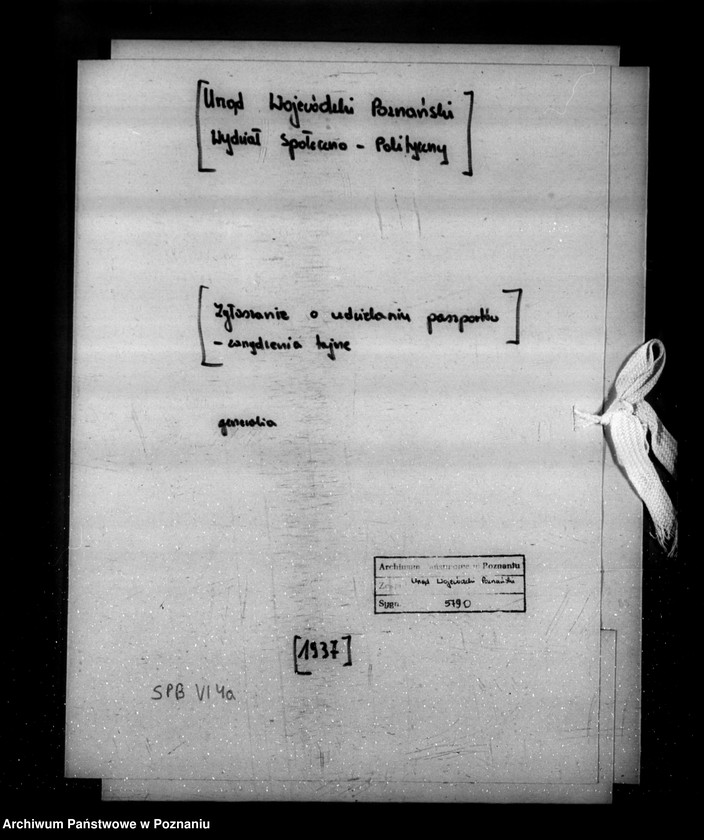 [Urząd Wojewódzki Poznański
Wydział Społeczno - Polityczny]
[Zgłaszanie o udzielaniu paszportów
- zarządzenia tajne]
generalia
Archiwum Państwowe w Poznaniu
Zespół Urząd Wojewódzki Poznański
Sygn. 5790
[1937]
SPB VI 4a
Archiwum Państwowe w Poznaniu